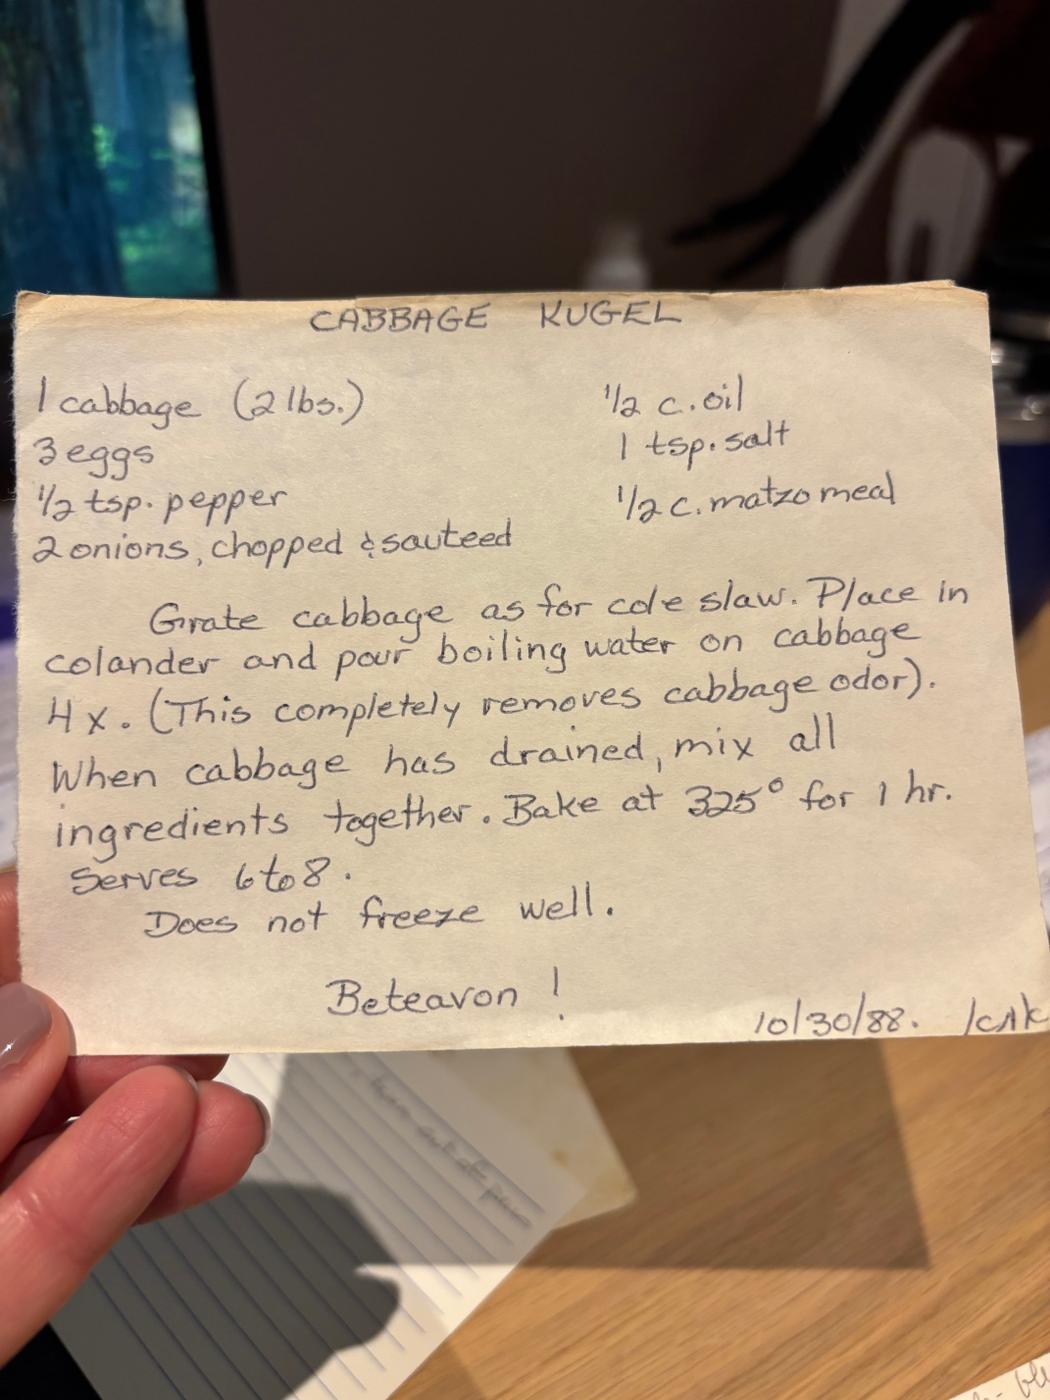 CABBAGE KUGEL
1 cabbage (2 lbs.) 1/2 c. oil
3 eggs 1 tsp. salt
1/2 tsp. pepper 1/2 c. matzo meal
2 onions, chopped & sauteed
Grate cabbage as for cole slaw. Place in
colander and pour boiling water on cabbage
4x. (This completely removes cabbage odor).
When cabbage has drained, mix all
ingredients together. Bake at 325° for 1 hr.
Serves 6 to 8.
Does not freeze well.
Beteavon!
10/30/88.